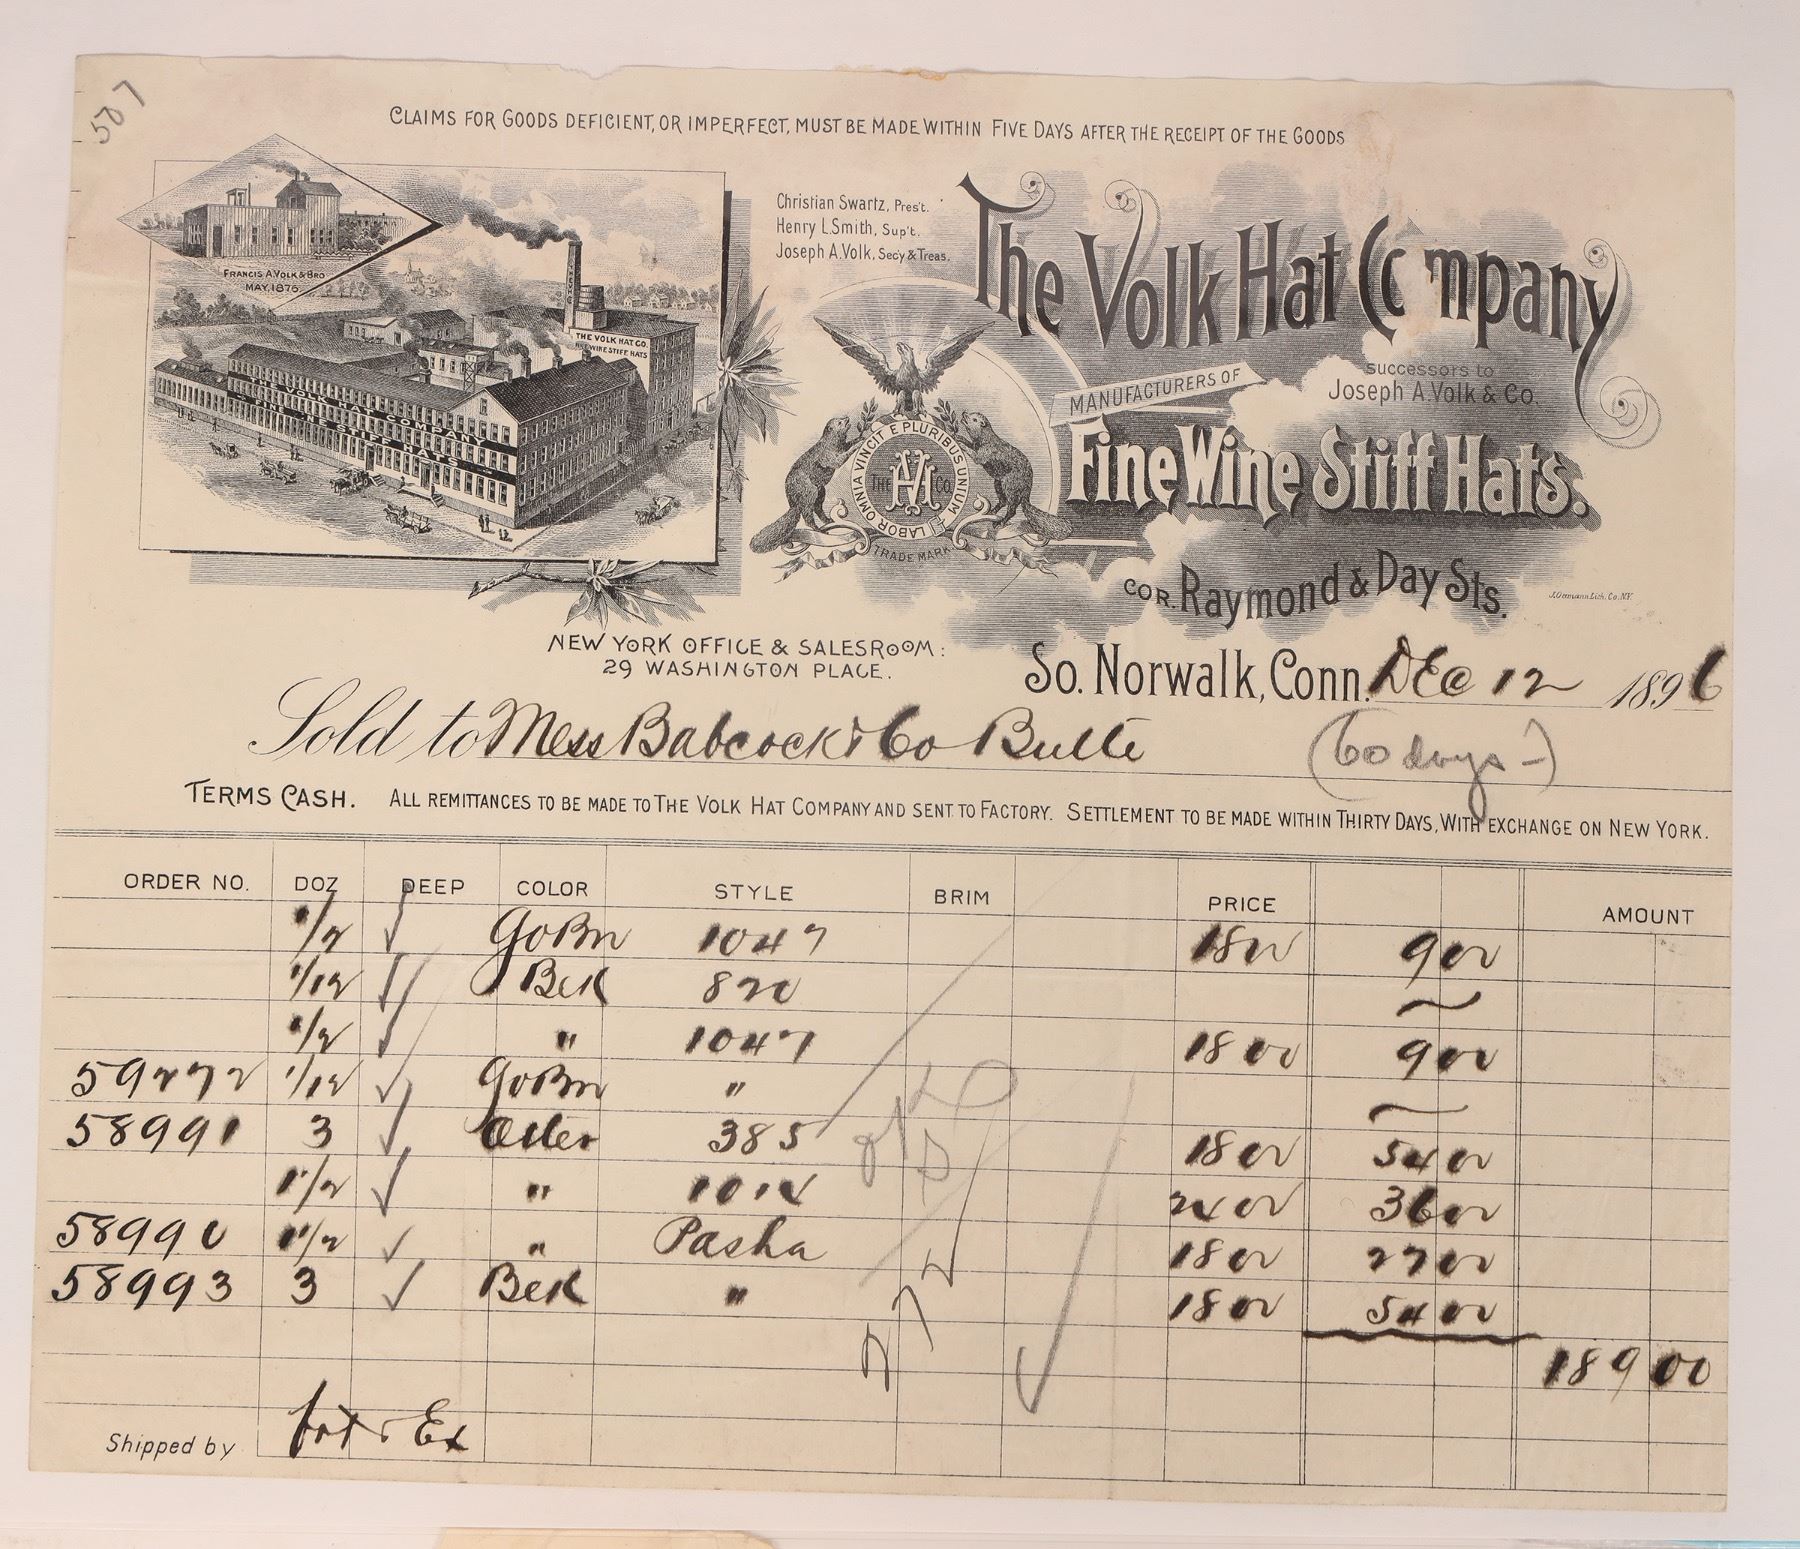 587
CLAIMS FOR GOODS DEFICIENT, OR IMPERFECT, MUST BE MADE WITHIN FIVE DAYS AFTER THE RECEIPT OF THE GOODS
FRANCIS A. VOLK & BRO
MAY, 1876
THE VOLK HAT CO.
FINE WINE STIFF HATS
THE VOLK HAT COMPANY
FINE WINE STIFF HATS
Christian Swartz, Pres't.
Henry L. Smith, Sup't.
Joseph A. Volk, Sec'y & Treas.
The Volk Hat Company
successors to
Joseph A. Volk & Co.
MANUFACTURERS OF
Fine Wine Stiff Hats.
LABOR OMNIA VINCIT E PLURIBUS UNIUM
THE VH Co.
TRADE MARK
COR. Raymond & Day Sts.
NEW YORK OFFICE & SALESROOM:
29 WASHINGTON PLACE.
So. Norwalk, Conn. Dec 12 1896
Sold to Mess Babcock & Co Butte (60 days -)
TERMS CASH. ALL REMITTANCES TO BE MADE TO THE VOLK HAT COMPANY AND SENT TO FACTORY. SETTLEMENT TO BE MADE WITHIN THIRTY DAYS, WITH EXCHANGE ON NEW YORK.
ORDER NO. DOZ DEEP COLOR STYLE BRIM PRICE AMOUNT
1/2 GoBrn 1047 18 00 9 00
1/12 Blk 820
1/2 " 1047 18 00 9 00
59272 1/12 GoBrn "
58991 3 385 18 00 54 00
1 1/2 " 1014 24 00 36 00
58990 1 1/2 " Pasha 18 00 27 00
58993 3 Blk " 18 00 54 00
189 00
Shipped by Ex